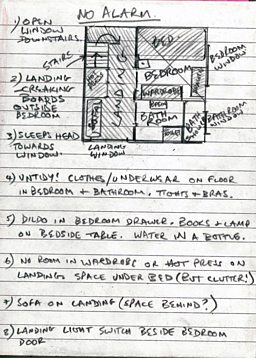 NO ALARM.
1) OPEN
WINDOW
DOWNSTAIRS.
STAIRS
BED
BEDROOM
BEDROOM
WINDOW
2) LANDING
CREAKING
BOARDS
OUTSIDE
BEDROOM
LANDING
WARDROBE
BATH
ROOM
BATHROOM
WINDOW
3) SLEEPS HEAD
TOWARDS
WINDOW.
LANDING
WINDOW
4) UNTIDY! CLOTHES/UNDERWEAR ON FLOOR
IN BEDROOM & BATHROOM. TIGHTS & BRAS.
5) DILDO IN BEDROOM DRAWER. BOOKS & LAMP
ON BEDSIDE TABLE. WATER IN A BOTTLE.
6) NO ROOM IN WARDROBE OR HOT PRESS ON
LANDING. SPACE UNDER BED (BUT CLUTTER!)
7) SOFA ON LANDING (SPACE BEHIND?)
8) LANDING LIGHT SWITCH BESIDE BEDROOM
DOOR